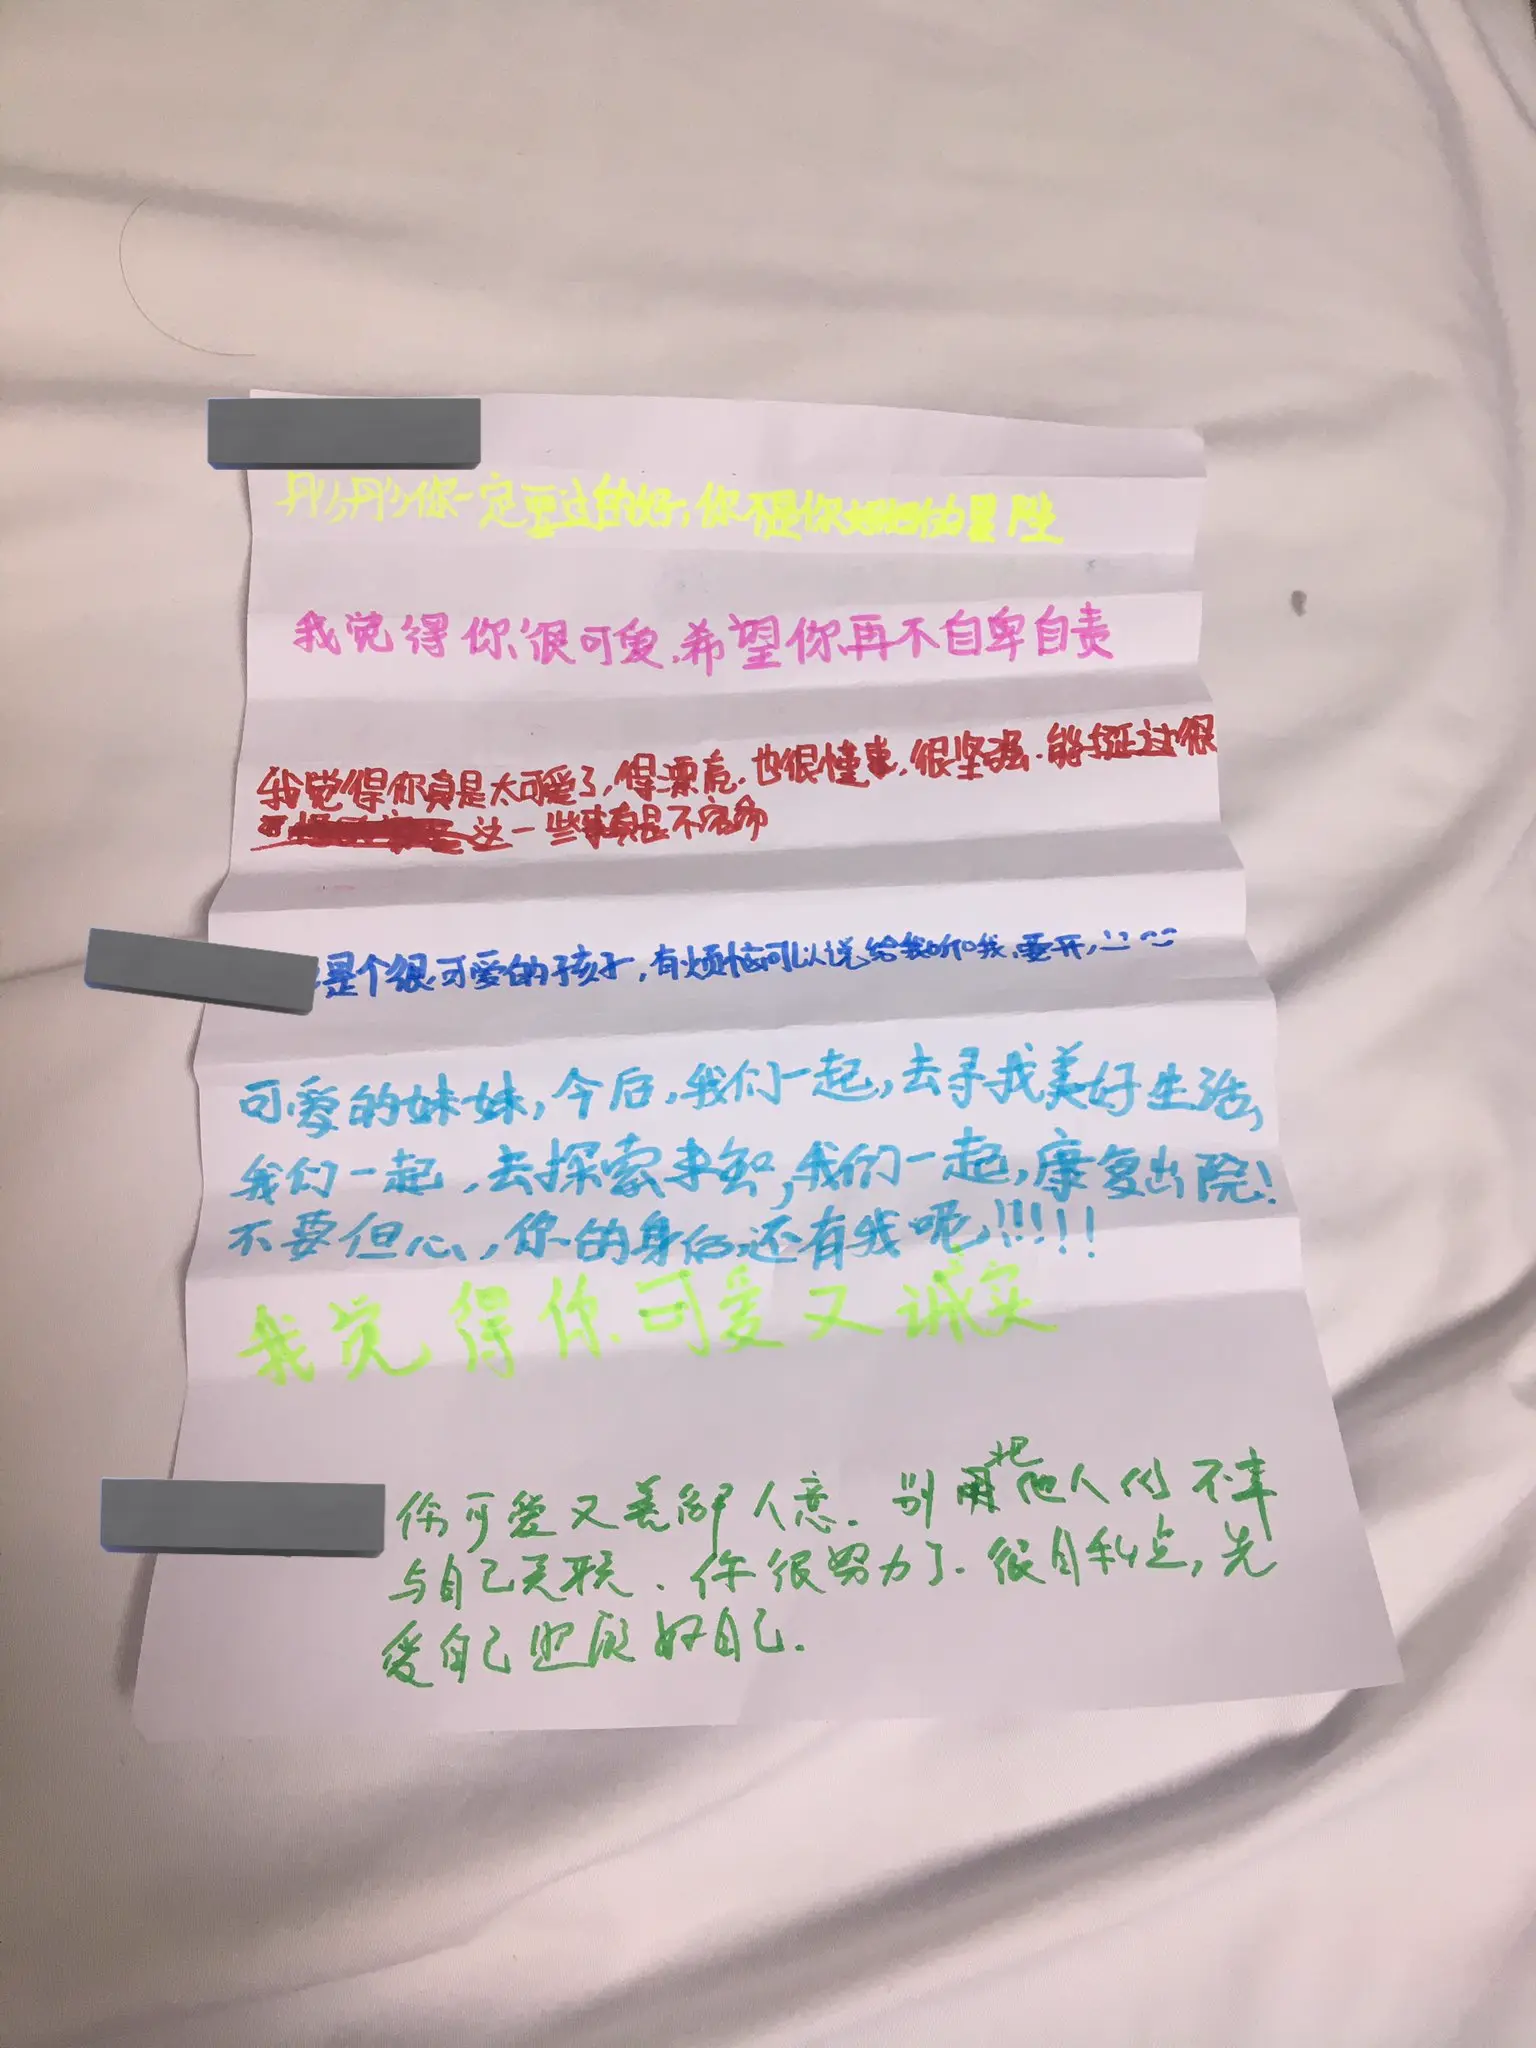 你一定要过的好,你不是你
我觉得你很可爱,希望你再不自卑自责
我觉得你真是太可爱了,得漂亮,也很懂事,很坚强.能挺过很
这一些事真是不容命
是个很可爱的孩子,有烦恼可以说给我听哦,要开,
可爱的妹妹,今后,我们一起,去寻找美好生活,
我们一起,去探索未知,我们一起,康复出院!
不要但心,你的身后,还有我呢,!!!!!
我觉得你可爱又诚实
你可爱又善解人意.别把他人的不幸
与自己关联、你很努力了.很自私点,先
爱自己 照顾好自己.